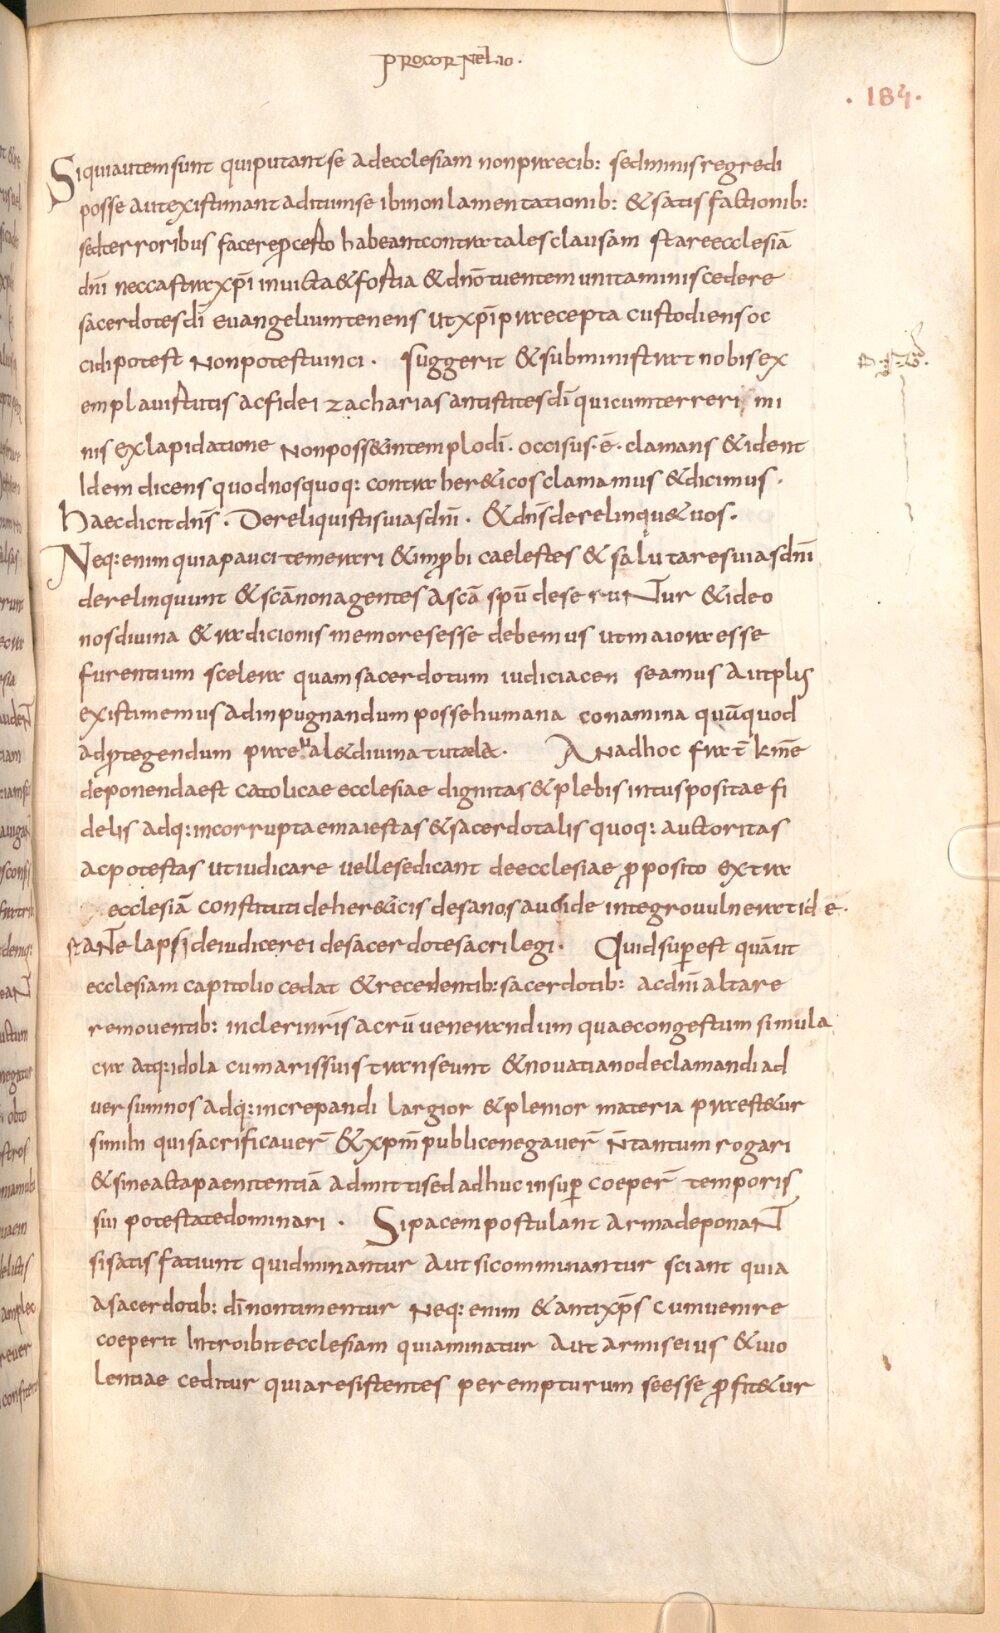 PROCORNELIO.
. 184 .
Siquiautemsunt quiputantse adecclesiam nonpraecib: sedminisregredi
posse autexistimant aditumse ibinonlamentationib: &satisfactionib:
sedterroribus facerep̱certo habeantcontratalesclausam stareecclesiā
dn̄i neccastraxp̄i inuicta&fortia &dn̄otuentemunitaminiscedere
sacerdotesdī euangeliumtenens utxp̄ipraecepta custodiensoc
cidipotest Nonpotestuinci. suggerit &subministrat nobisex
emplauirtutis acfidei zacharias antistitesdī quicumterreri mi
nis exlapidatione Nonposs&intemplodī. occisus.ē. clamans &ident
Idemdicens quodnosquoq: contraher&icosclamamus &dicimus.
haecdicitdn̄s. Dereliquistisuiasdn̄i. &dn̄sderelinqu&uos.
Neq:enimquiapauci temerari &inp̱bi caelestes & salutaresuiasdn̄i
derelinquunt &scānonagentes ascō spū deseruntur &ideo
nosdiuina &radicionis memoresesse debemus utmaioraesse
furentium scelera quamsacerdotum iudiciacen seamus autplis
existimemus adinpugnandumpossehumana conamina quūquod
adp̱tegendum praeual&diuina tutela&. ANadhoc frat̄ km̄e
deponendaest catolicae ecclesiae dignitas &plebis intuspositae fi
delis adq:incorruptaemaiestas &sacerdotalis quoq: auctoritas
acpotestas utiudicare uellesedicant deecclesiae p̱posito extra
ecclesiā constituti deher&icis desanos auside integrouulneratide
staNte lapsideiudicerei desacerdotesacrilegi. Quidsup̱est quāut
ecclesiam capitolio cedat &recedentib:sacerdotib: acdn̄ialtare
remouentib: inclerinr̄isacrū uenerandum quaecongestum simula
cra atq:idola cumarissuistranseunt &nouatianodeclamandiad
uersumnos adq:increpandi largior &plenior materia praest&ur
simihi quisacrificauer̄ &xpm̄publicenegauer̄ n̄tantum rogari
&sineactapaenitentiā admittisedadhucinsup̱ coeper̄ temporis
sui potestatedominari. Sipacempostulant armadeponaNT
sisatisfatiunt quidminantur autsicomminantur sciant quia
asacerdotib: dīnontimentur Neq:enim &antixp̄s cumuenire
coeperit Introibitecclesiam quiaminatur aut armiseius &uio
lentiae ceditur quiaresistentes perempturum seesse p̱fit&ur